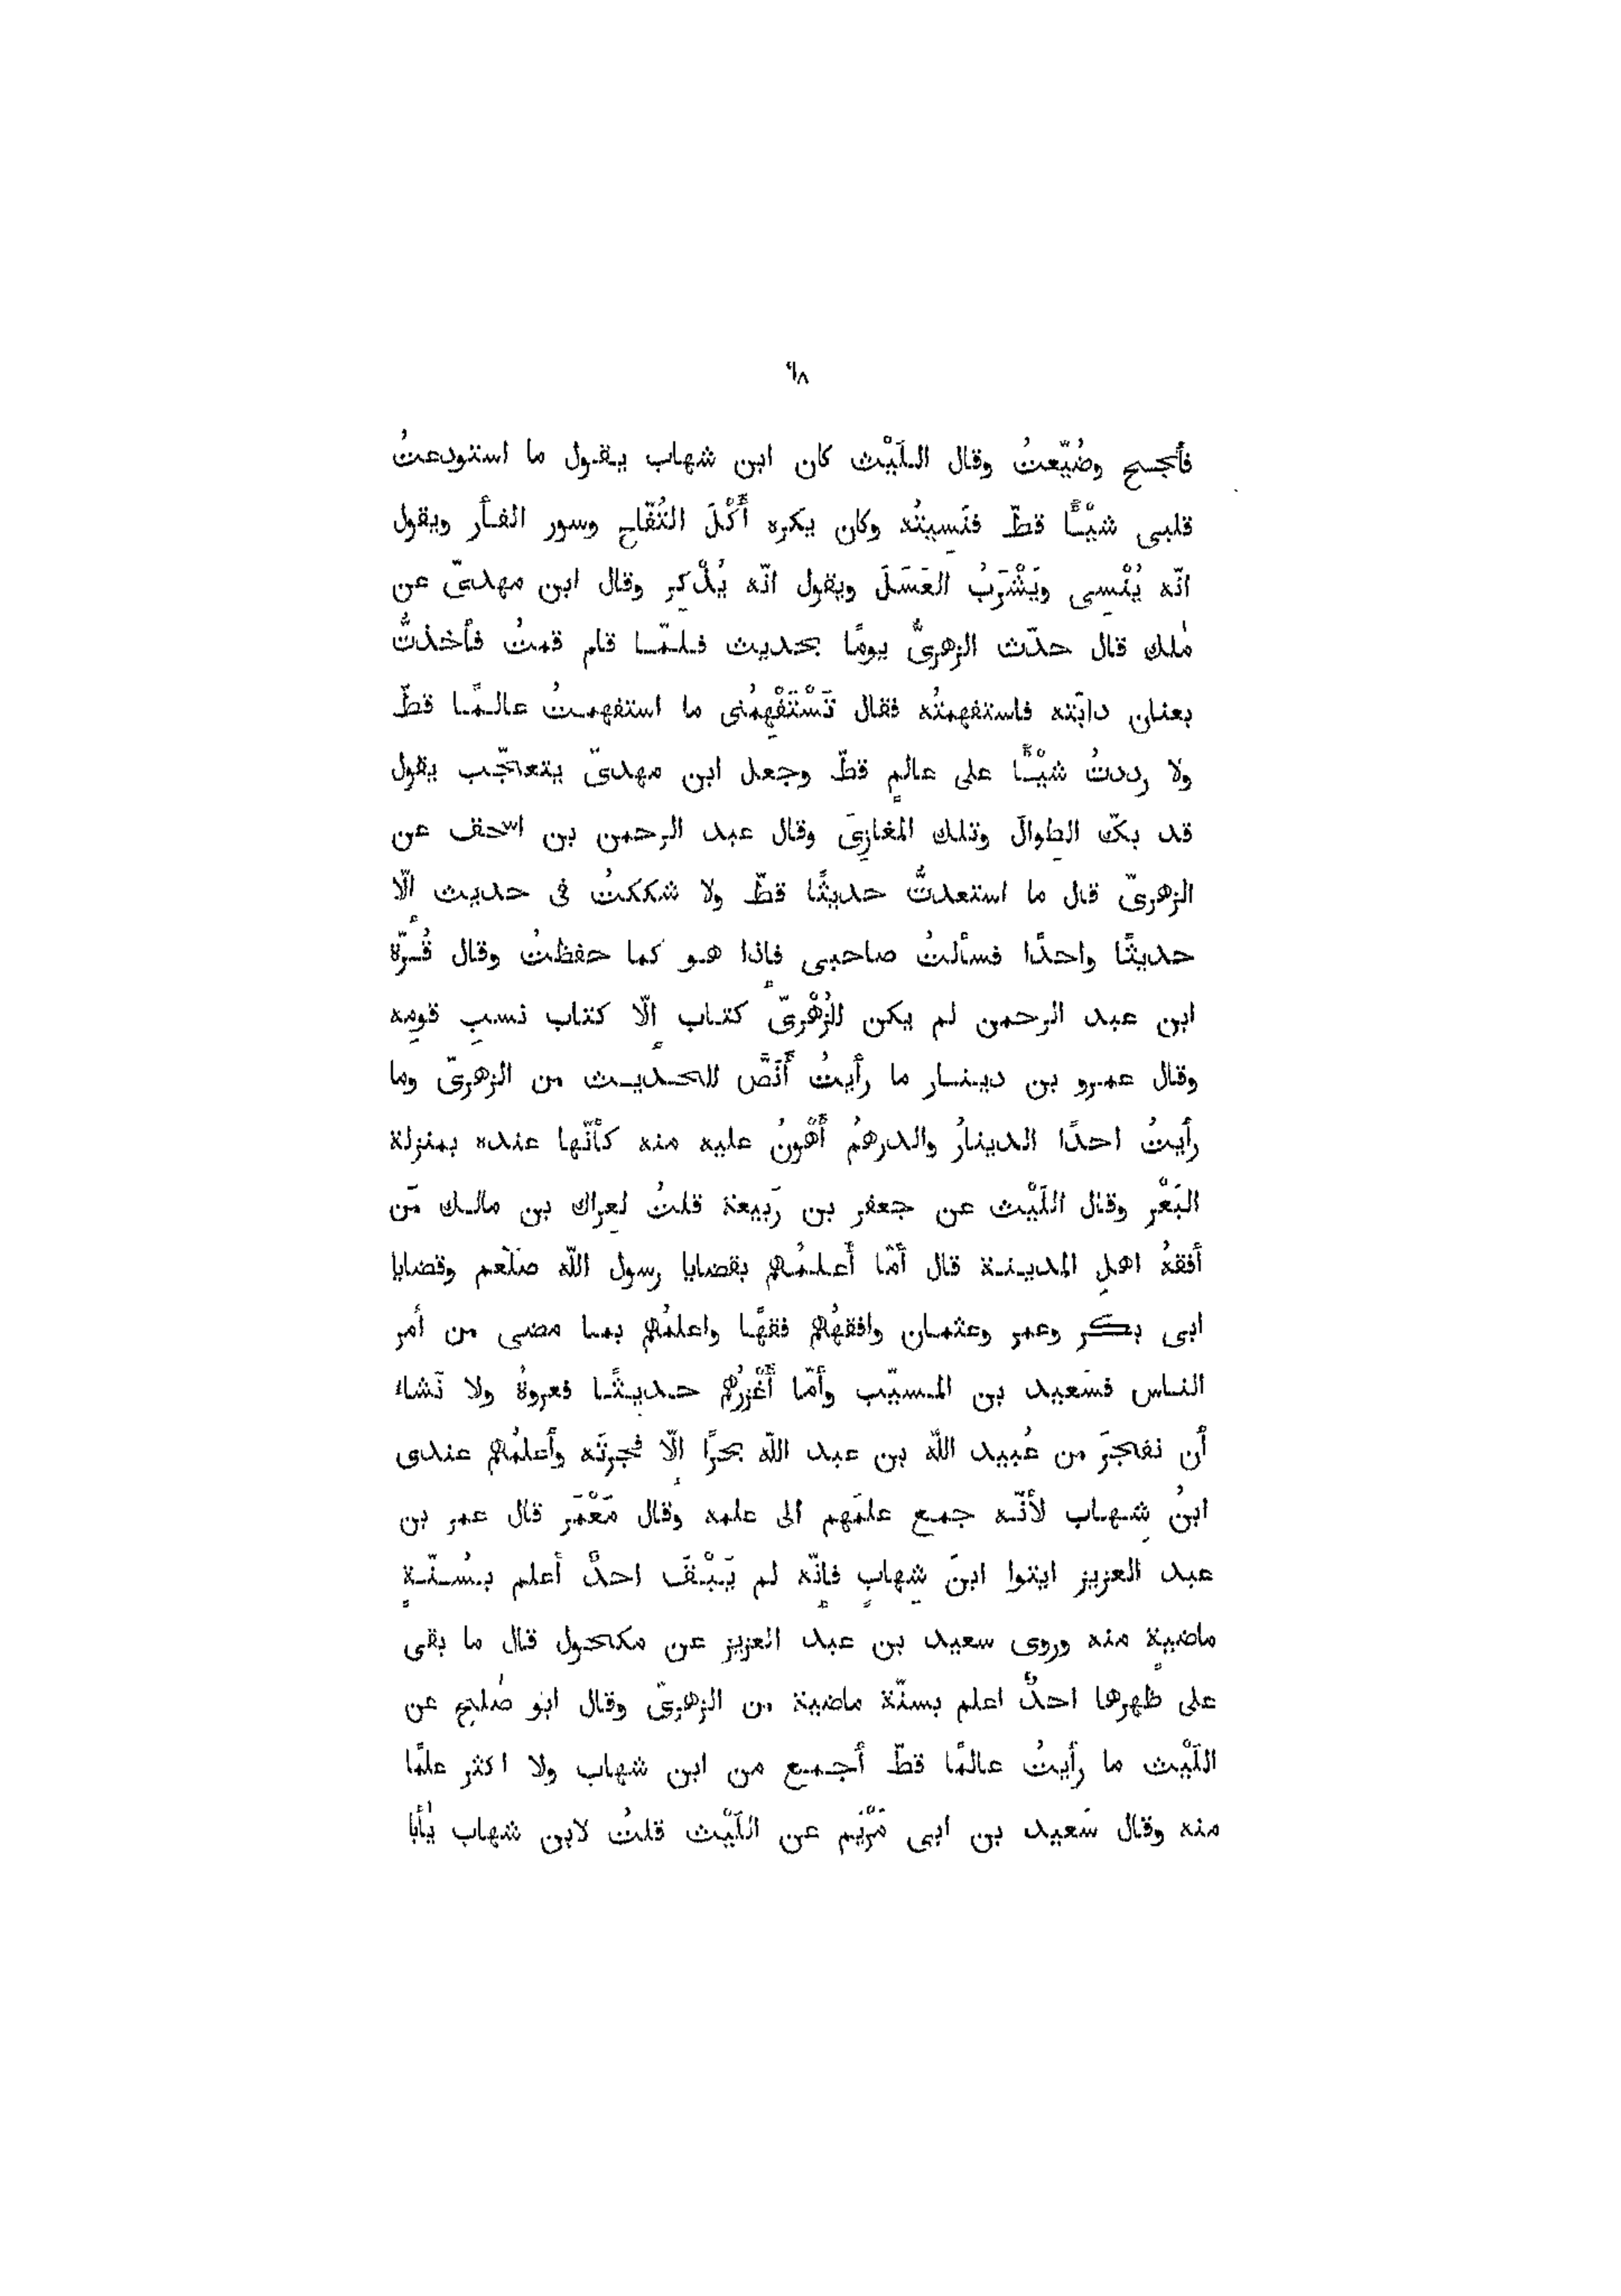 ٦٨
فأنجسح وضُيّعتُ وقال اللَيْث كان ابن شهاب يقول ما استودعتُ
قلبى شيْـًٔا قطّ فنَسِيتُه وكان يكره أَكْلَ التُفّاح وسور الفأر ويقول
انّه يُنْسِى ويَشْرَبُ العَسَلَ ويقول انّه يُذْكِر وقال ابن مهدىّ عن
مٰلك قال حدّث الزهرىُّ يومًا بحديث فلمّا قام قمتُ فأخذتُّ
بعنان دابّته فاستفهمتُه فقال تَسْتَفْهِمُنى ما استفهمتُ عالمًا قطّ
ولا رددتُ شيْـًٔا على عالمٍ قطّ وجعل ابن مهدىّ يتعجّب يقول
قد بكّ الطِوالَ وتلك المغازِىَ وقال عبد الرحمن بن اسحٰق عن
الزهرىّ قال ما استعدتُّ حديثًا قطّ ولا شككتُ فى حديث الّا
حديثًا واحدًا فسألتُ صاحبى فاذا هو كما حفظتُ وقال قُرّة
ابن عبد الرحمن لم يكن للزُهْرىّ كتاب إلّا كتاب نسبِ قومِه
وقال عمرو بن دينار ما رأيتُ أَنَصَّ للحديث من الزهرىّ وما
رأيتُ احدًا الدينارُ والدرهمُ أَهْونُ عليه منه كأنّها عنده بمنزلة
البَعْر وقال اللَيْث عن جعفر بن رَبيعة قلتُ لعِراك بن مالك مَن
أفقهُ اهلِ المدينة قال أمّا أَعلمُهم بقضايا رسول الله صلّعم وقضايا
ابى بكر وعمر وعثمان وافقهُهم فقهًا واعلمُهم بما مضى من أمر
الناس فسَعيد بن المسيّب وأمّا أَغْزرُهم حديثًا فعروةُ ولا تَشاء
أن تفجرَ من عُبيد الله بن عبد الله بحرًا إلّا فجرتَه وأعلمُهم عندى
ابنُ شِهاب لأنّه جمع علمَهم الى علمه وقال مَعْمَر قال عمر بن
عبد العزيز ايتوا ابنَ شِهابٍ فإنّه لم يَبْقَ احدٌ أعلم بسُنّةٍ
ماضيةٍ منه وروى سعيد بن عبد العزيز عن مكحول قال ما بقى
على ظهرها احدٌ اعلم بسنّة ماضية من الزهرىّ وقال ابو صٰلح عن
اللَيْث ما رأيتُ عالمًا قطّ أجمع من ابن شهاب ولا اكثر علمًا
منه وقال سَعيد بن ابى مَرْيَم عن اللَيْث قلتُ لابن شهاب يٰأبا